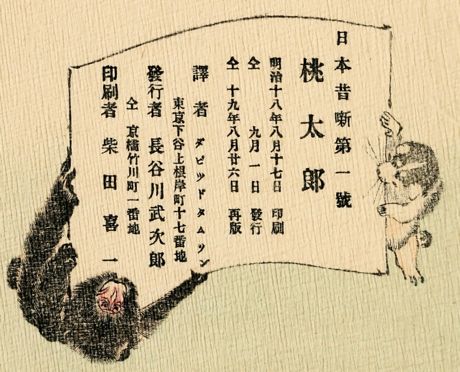 日本昔噺第一號
桃太郎
明治十八年八月十七日 印刷
仝 九月一日 發行
仝 十九年八月廿六日 再版
譯者 ダビツドタムソン
東京下谷上根岸町十七番地
發行者 長谷川武次郎
仝 京橋竹川町一番地
印刷者 柴田喜一